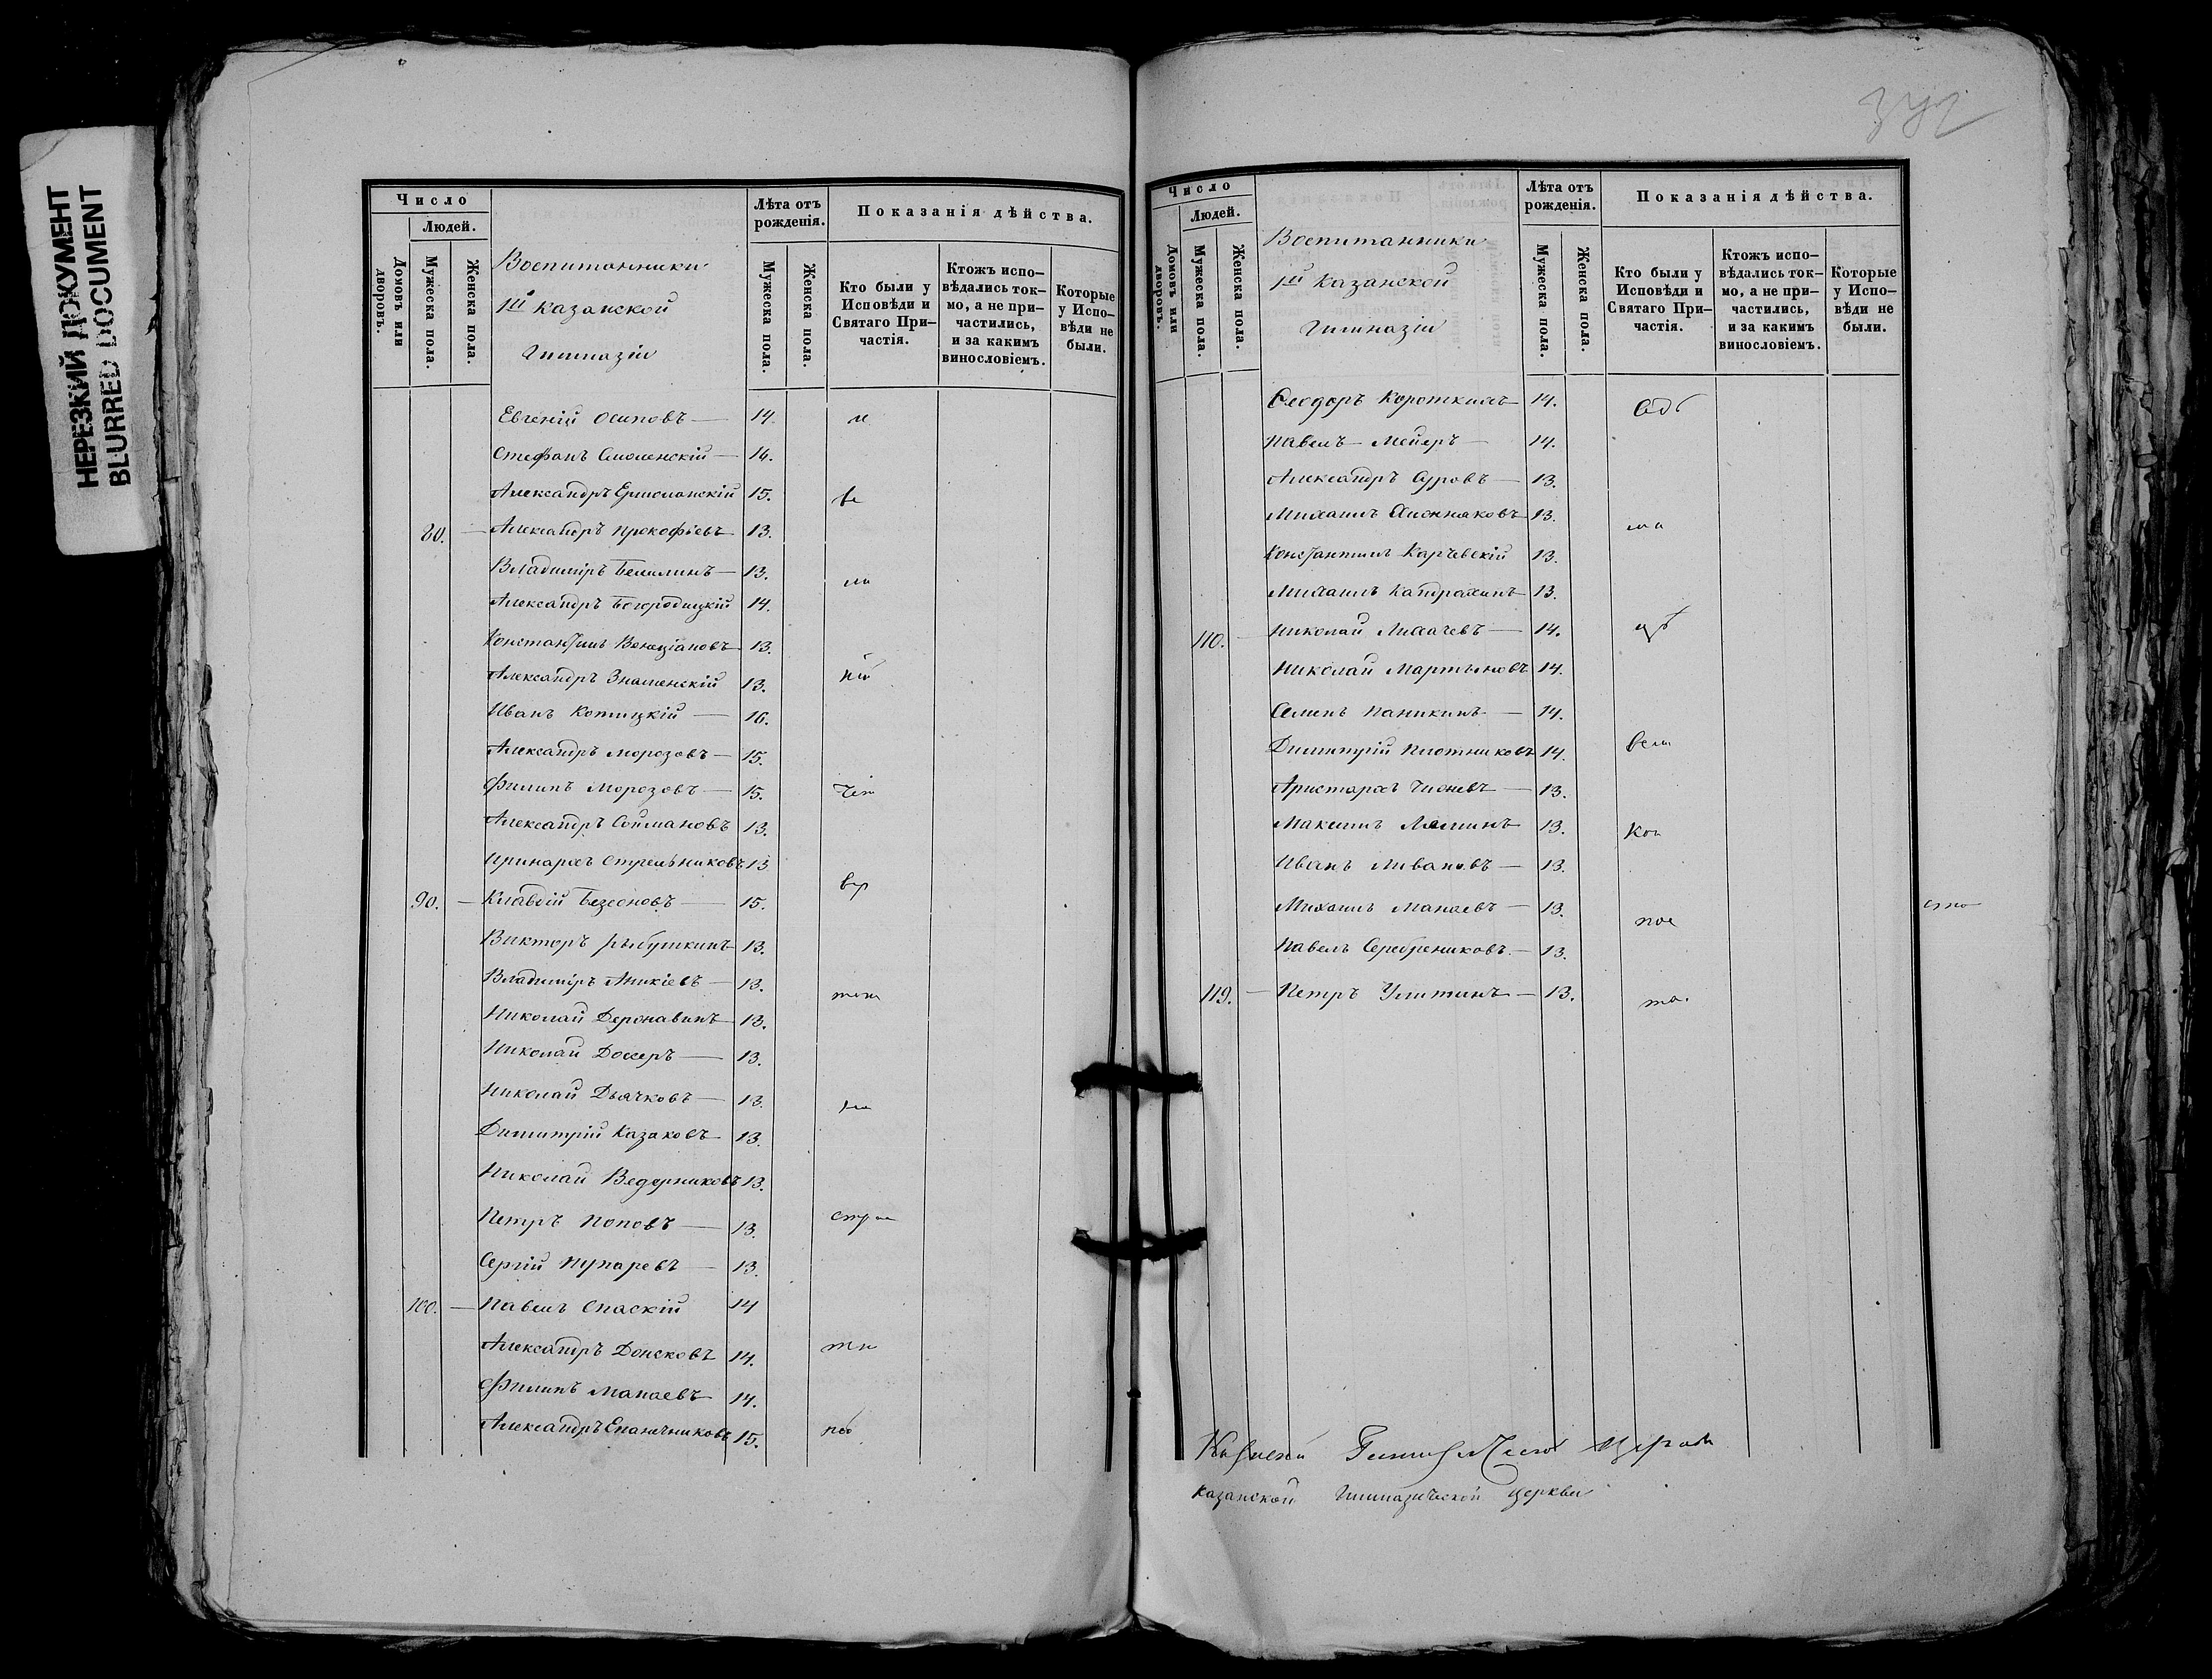 НЕРЕЗКИЙ ДОКУМЕНТ
BLURRED DOCUMENT
Число
Людей.
Домовъ или дворовъ.
Мужеска пола.
Женска пола.
Воспитанники
1й Казанской
Гимназіи
Лѣта отъ рожденія.
Мужеска пола.
Женска пола.
Показанія дѣйства.
Кто были у Исповѣди и Святаго При-частія.
Ктожъ испо-вѣдались ток-мо, а не при-частились, и за какимъ винословіемъ.
Которые у Испо-вѣди не были.
Евгеній Осиповъ — 14.
Стефанъ Смоленскій — 14.
Александръ 15.
80. — Александръ Прокофьевъ 13.
Владиміръ 13.
Александръ Богородицкій 14.
Константинъ Венеціановъ 13.
Александръ Знаменскій 13.
Иванъ Котицкій — 16.
Александръ Морозовъ — 15.
Филипъ Морозовъ — 15.
Александръ 13.
Иринархъ Стрельниковъ 13
90. — Клавдій Безсоновъ — 15.
Викторъ Рыбушкинъ 13.
Владиміръ Аникіевъ — 13.
Николай Державинъ 13.
Николай 13.
Николай Дьячковъ — 13.
Димитрій Казаковъ 13.
Николай Ведерниковъ 13.
Петръ Поповъ — 13.
Сергій Пупаревъ — 13.
100. — Павелъ Спаскій 14
Александръ Донсковъ 14.
Филипъ Манаевъ 14.
Александръ Епанечниковъ 15.
Число
Людей.
Домовъ или дворовъ.
Мужеска пола.
Женска пола.
Воспитанники
1й Казанской
Гимназіи
Лѣта отъ рожденія.
Мужеска пола.
Женска пола.
Показанія дѣйства.
Кто были у Исповѣди и Святаго При-частія.
Ктожъ испо-вѣдались ток-мо, а не при-частились, и за какимъ винословіемъ.
Которые у Испо-вѣди не были.
Ѳеодоръ 14.
Павелъ — Мейеръ — 14.
Александръ Суровъ — 13.
Михаилъ 13.
Константинъ Карчевскій 13.
Михаилъ 13.
110. — Николай Лихачевъ — 14.
Николай Мартыновъ 14.
Семенъ Паникинъ — 14.
Димитрій Плотниковъ 14.
Аристархъ 13.
Максимъ 13.
Иванъ Ливановъ — 13.
Михаилъ Манаевъ — 13.
Павелъ Серебрениковъ — 13.
119. — Петръ Улитинъ — 13.
Казанской Гимназической церкви